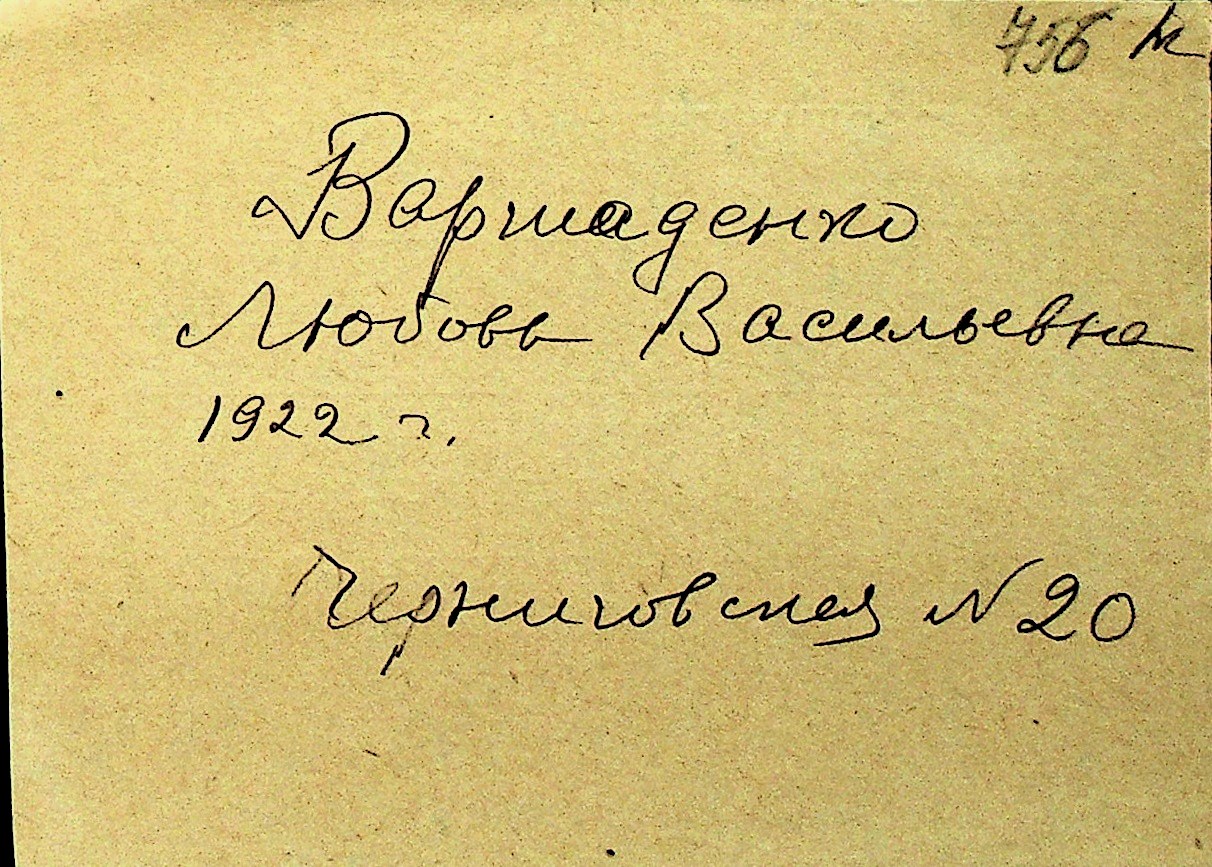 756 к
Вармаденко
Любовь Васильевна
1922 г.
Черниговская № 20